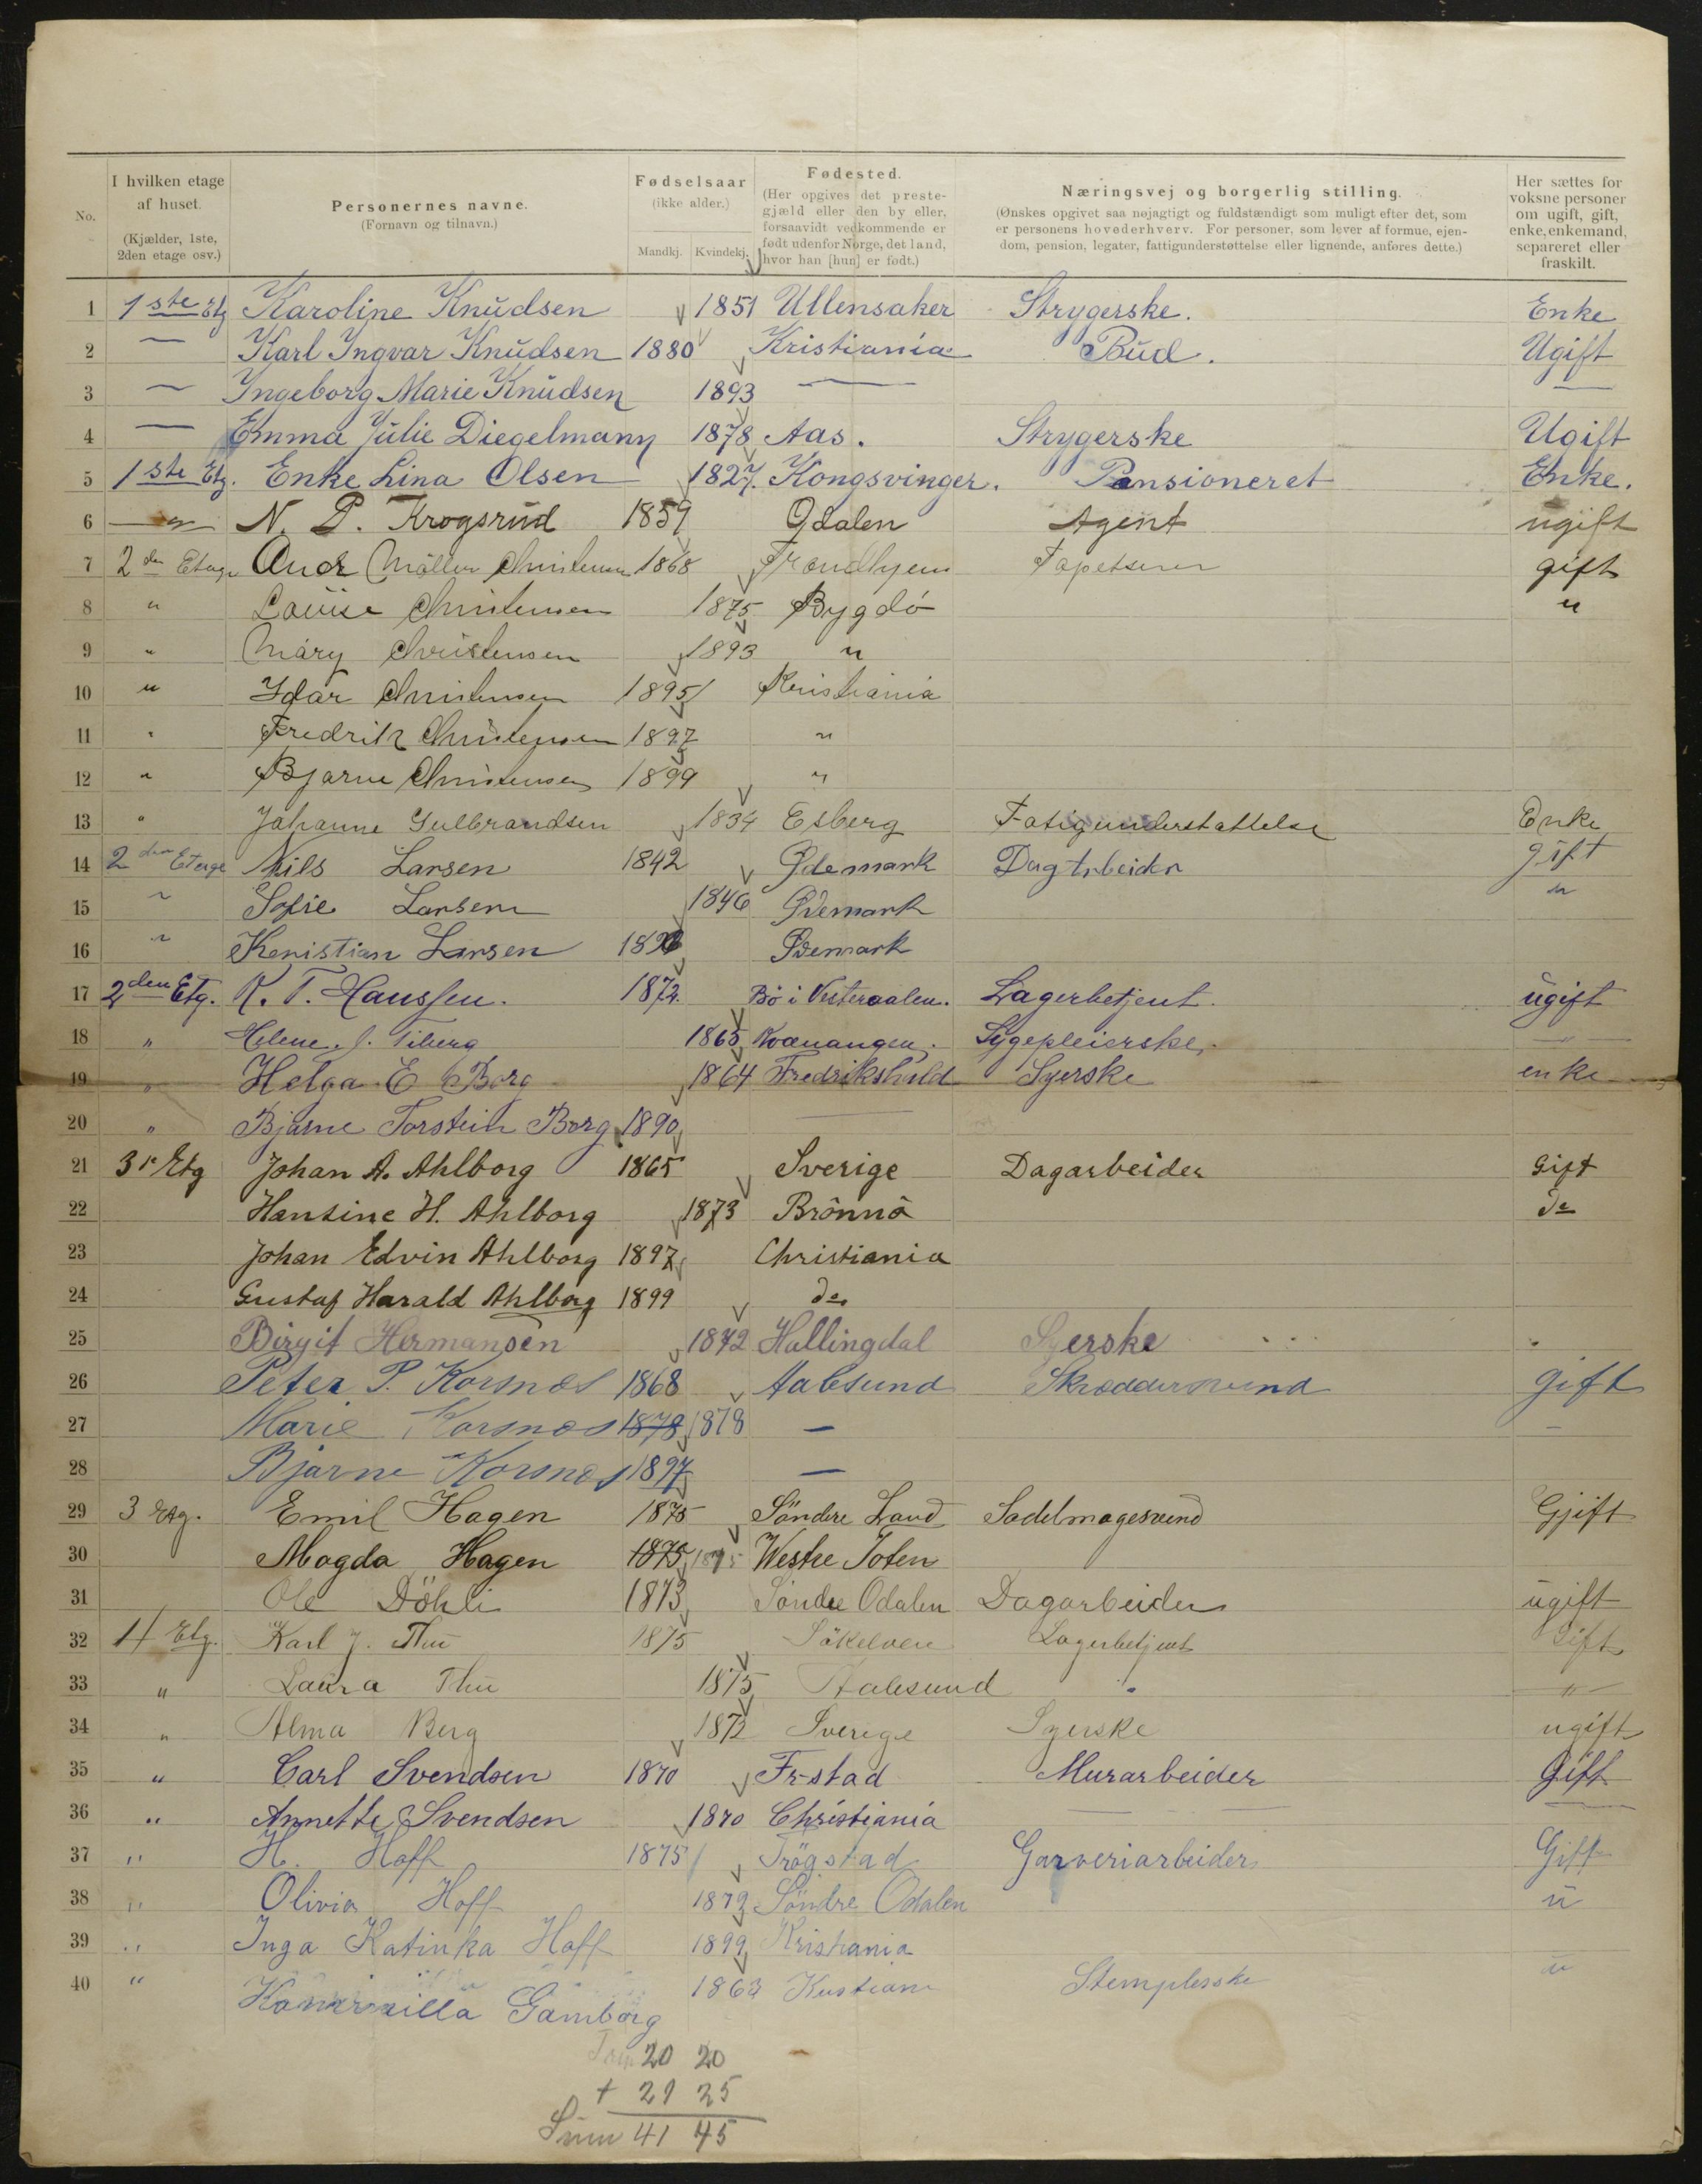 No.
I hvilken etage af huset.
(Kjælder, 1ste, 2den etage osv.)
Personernes navne.
(Fornavn og tilnavn.)
Fødselsaar
(ikke alder.)
Mandkj. Kvindekj.
Fødested.
(Her opgives det prestegjæld eller den by eller, forsaavidt vedkommende er født udenfor Norge, det land, hvor han [hun] er født.)
Næringsvej og borgerlig stilling.
(Ønskes opgivet saa nøjagtigt og fuldstændigt som muligt efter det, som er personens hovederhverv. For personer, som lever af formue, ejendom, pension, legater, fattigunderstøttelse eller lignende, anføres dette.)
Her sættes for voksne personer om ugift, gift, enke, enkemand, separeret eller fraskilt.
1 1ste Etg Karoline Knudsen 1851 Ullensaker Strygerske. Enke
2 — Karl Ingvar Knudsen 1880 Kristiania Bud. Ugift
3 — Ingeborg Marie Knudsen 1893 — —
4 — Emma Julie Diegelmann 1878 Aas. Strygerske Ugift
5 1ste Etg. Enke Lina Olsen 1827. Kongsvinger. Pensioneret Enke.
6 —"— N. P. Krogsrud 1859 Odalen Agent ugift
7 2den Etage Möller Christensen 1868 Trondhjem Tapetserer gift
8 " Louise Christensen 1875 Bygdö "
9 " Mary Christensen 1893 "
10 " Idar Christensen 1895 Kristiania
11 " Fredrik Christensen 1897 "
12 " Bjarne Christensen 1899 "
13 " Johanne Gulbrandsen 1834 Esberg Fatigunderstattelse Enke
14 2den Etage Nils Larsen 1842 Ødemark Dagarbeider gift
15 " Sofie Larsen 1846 Ødemark "
16 " Kenistian Larsen Ødemark
17 2den Etg. K. T. Hanssen. 1872. Bö i Vesteraalen. Lagerbetjent. ugift
18 " Helene J. Tiberg 1865 Kvænangen. Sygepleierske, —"—
19 " Helga E Borg 1864 Fredrikshald Syerske enke
20 " Bjarne Torstein Borg 1890 —
21 3die Etg Johan A. Ahlborg 1865 Sverige Dagarbeider Gift
22 Hansine H. Ahlborg 1873 Brönnö do
23 Johan Edvin Ahlborg 1897 Christiania
24 Gustaf Harald Ahlborg 1899 do
25 Birgit Hermansen 1872 Hallingdal Syerske "
26 Peter P. Korsnes 1868 Aalesund Skræddersvend gift
27 Marie Korsnes 1878 1878 — —
28 Bjarne Korsnes 1897 —
29 3 Etg. Emil Hagen 1875 Söndre Land Sadelmagesvend Gjift
30 Magda Hagen 1875 1875 Westre Toten
31 Ole Döhli 1873 Söndre Odalen Dagarbeider ugift
32 4 Etg. Karl J. Thu 1875 Sökelven Lagerbetjent Gift
33 " Laura Thu 1875 Aalesund " —"—
34 " Alma Berg 1872 Sverige Syerske ugift
35 " Carl Svendsen 1870 Fr-stad Murarbeider Gift
36 " Annette Svendsen 1870 Christiania — — —
37 " H. Hoff 1875 Trögstad Garveriarbeider Gift
38 " Olivia Hoff 1872 Söndre Odalen "
39 " Inga Katinka Hoff 1899 Kristiania
40 " Gamborg 1863 Kristiania Stemplerske "
20 20
+ 21 25
Sum 41 45